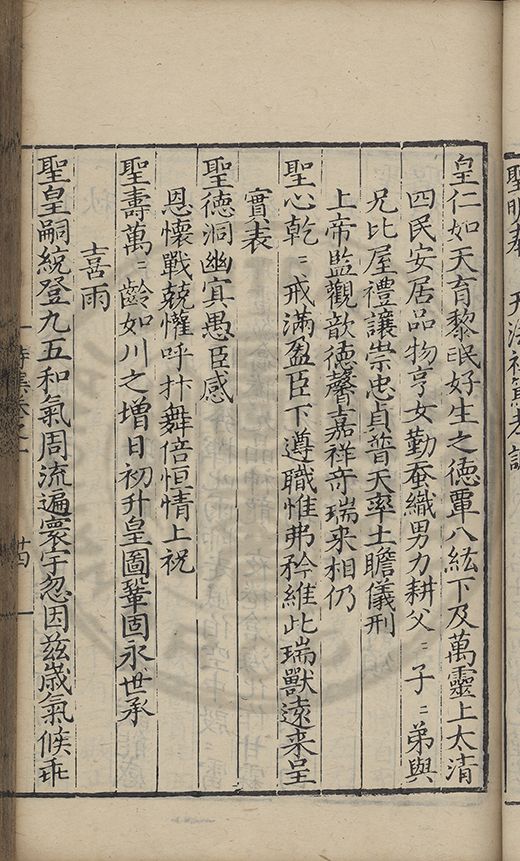 皇仁如天育黎民好生之德覃八紘下及萬靈上太清
四民安居品物亨女勤蚕織男力耕父〻子〻弟與
兄比屋禮讓崇忠貞普天率土瞻儀刑
上帝監觀歆德馨嘉祥奇瑞来相仍
聖心乾〻戒滿盈臣下遵職惟弗矜維此瑞獸遠来呈
實表
聖德洞幽冥愚臣感
恩懷戰兢懽呼抃舞倍恒情上祝
聖壽萬〻齡如川之增日初升皇圖鞏固永世承
喜雨
聖皇嗣統登九五和氣周流遍寰宇忽因兹歲氣候乖